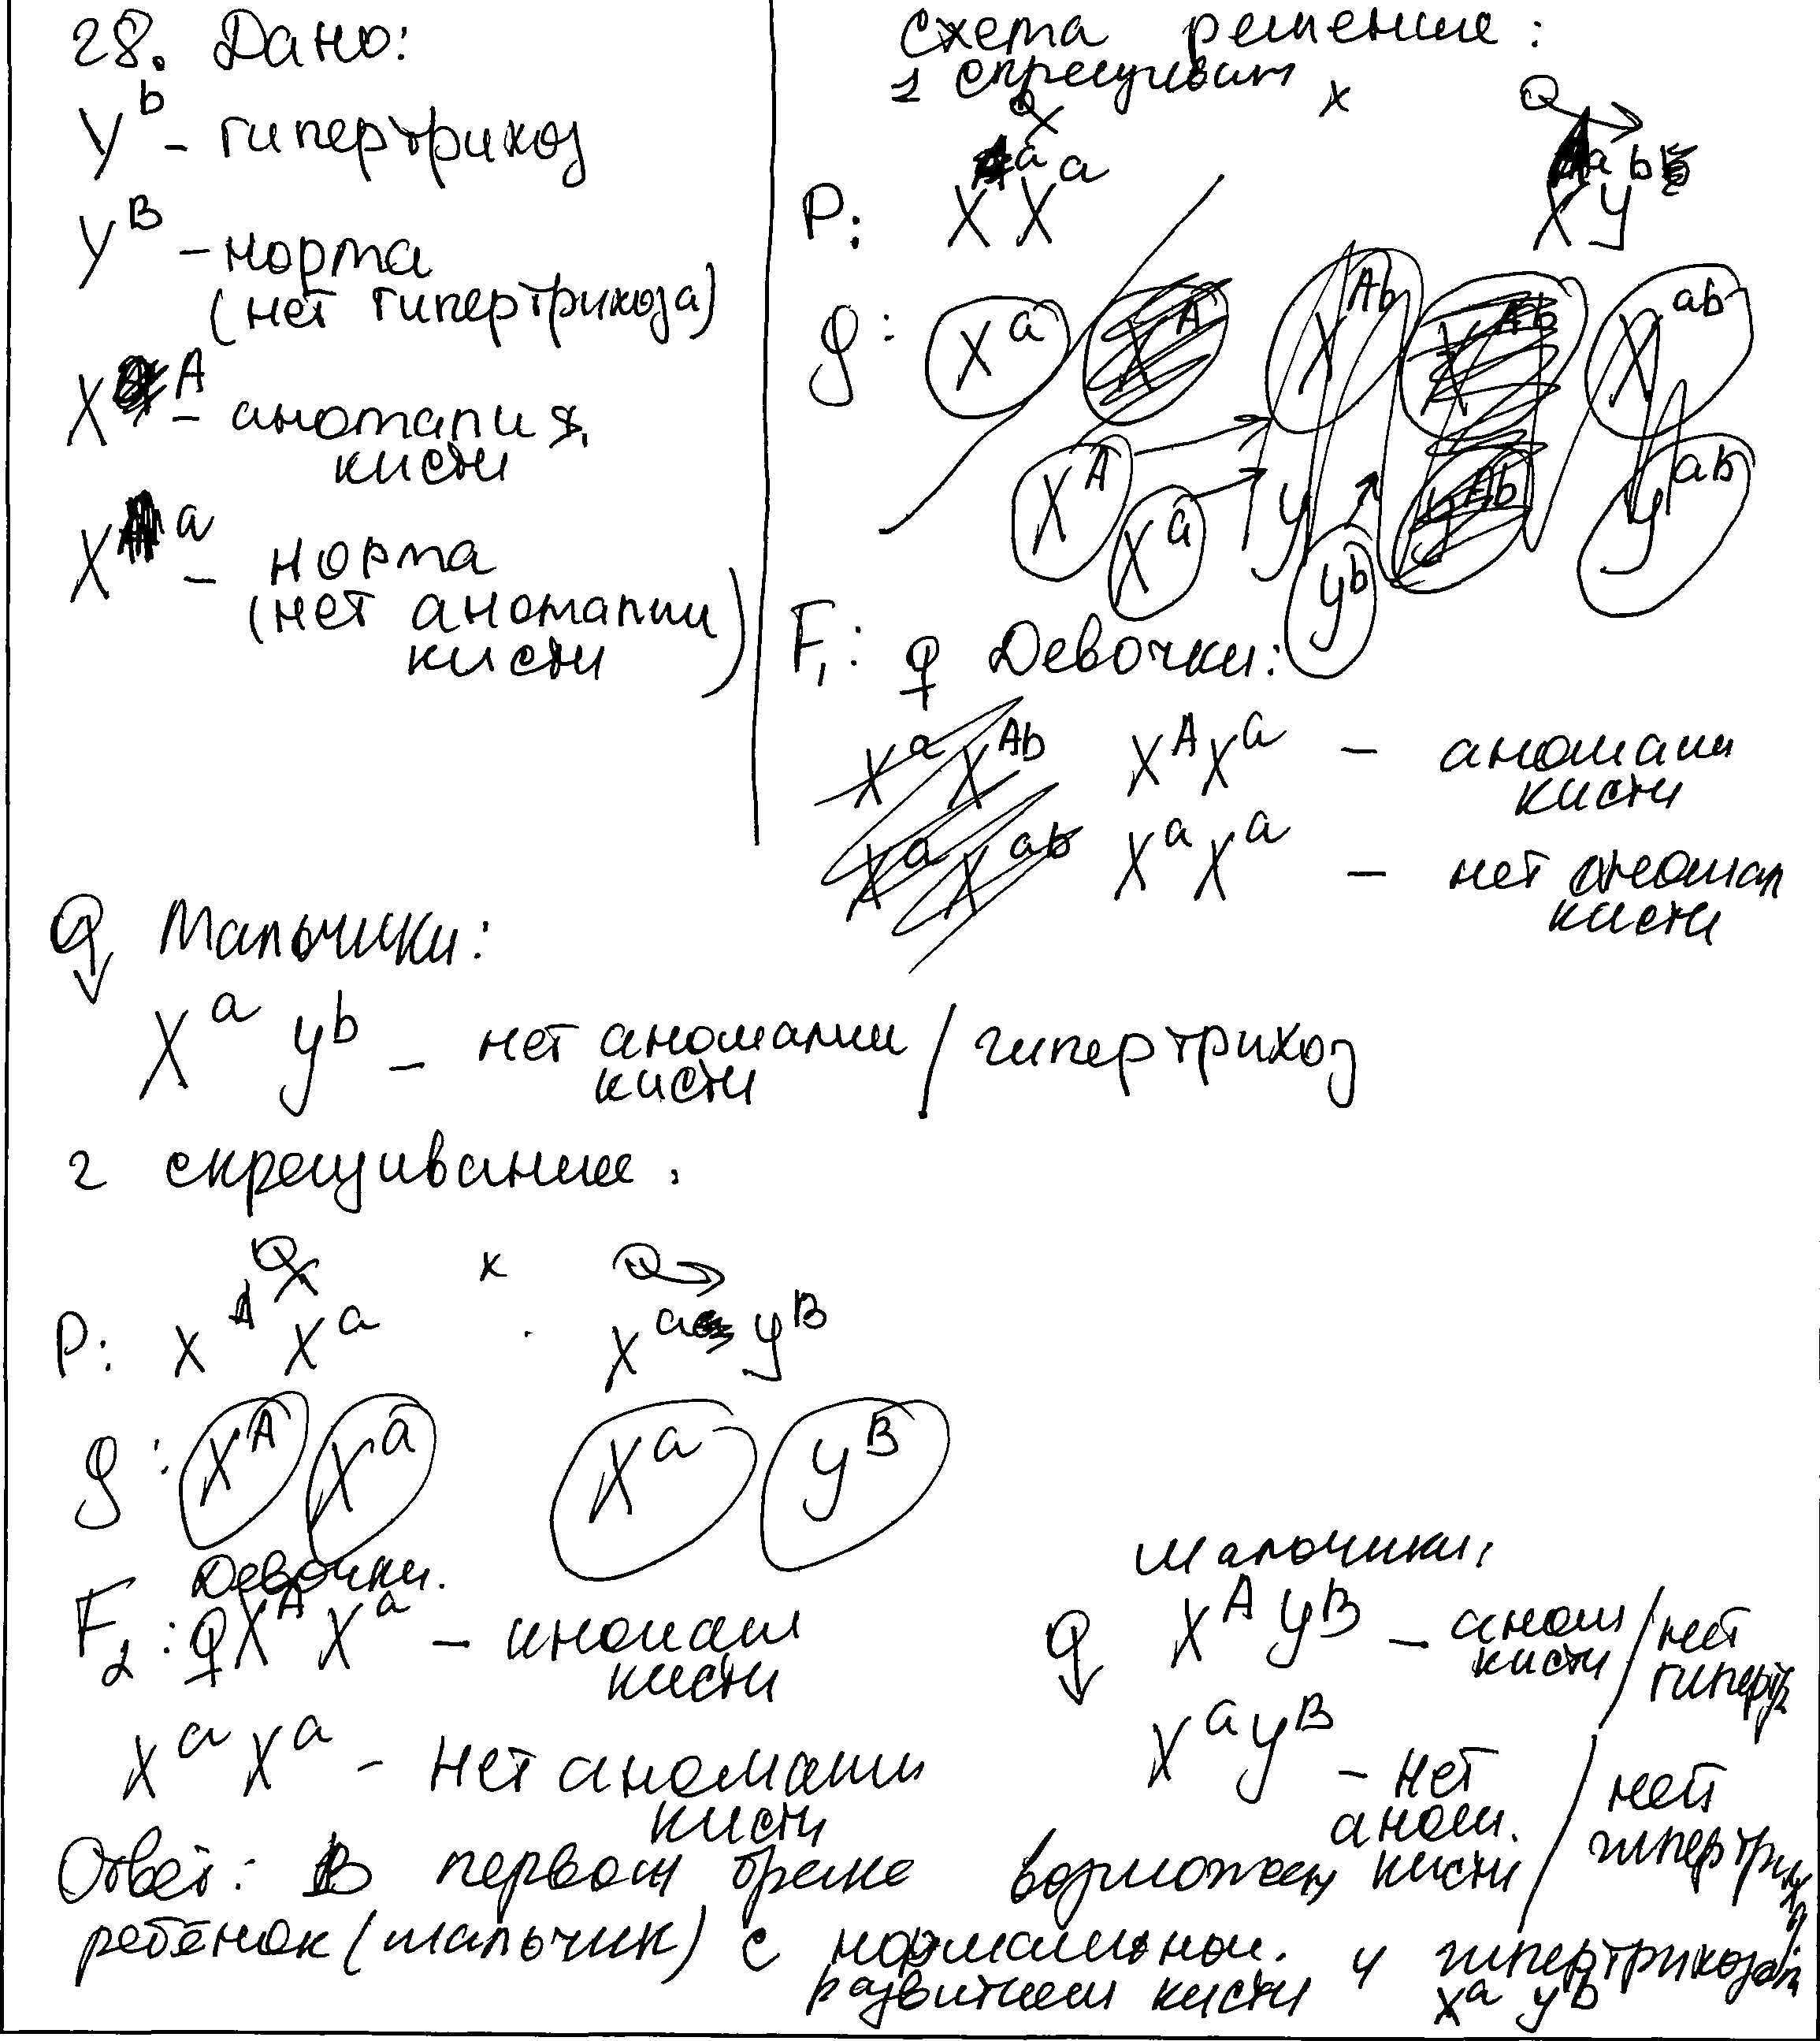 28. Дано:
Y^b - гипертрихоз
Y^B - норма
(нет гипертрихоза)
X^A - аномалия
кисти
X^a - норма
(нет аномалии
кисти)
Схема решение:
1 скрещиван
♀ x ♂
P: X^a X^a X^a Y^b
g: X^a X^A X^Ab X^Ab X^ab
X^A X^a y y^b y^Ab y^ab
F1: ♀ Девочки:
X^a X^Ab X^A X^a - аномалии
кисти
X^a X^ab X^a X^a - нет аномал
кисти
♂ Мальчики:
X^a y^b - нет аномалии / гипертрихоз
кисти
2 скрещивание.
♀ x ♂
P: X^A X^a X^a y^B
g: X^A X^a X^a y^B
Девочки.
F2: ♀ X^A X^a - аномали
кисти
X^a X^a - нет аномалии
кисти
Мальчики,
♂ X^A y^B - аном / нет
кисти гиперт
X^a y^B - нет / нет
аном. гипертрихоз
кисти
Ответ: В первом браке возможен
ребёнок (мальчик) с нормальном. и гипертрихозом
развитием кисти X^a y^b